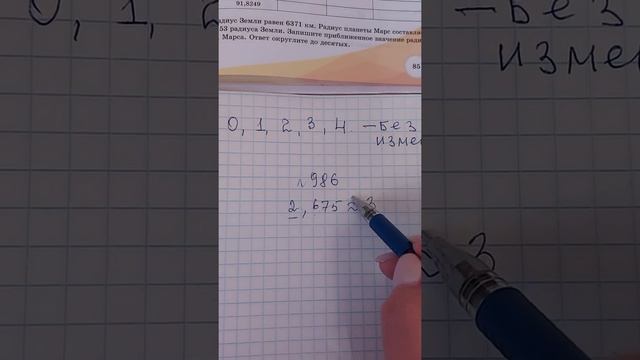 91,8249
адиус Земли равен 6371 км. Радиус планеты Марс составля
53 радиуса Земли. Запишите приближенное значение ради
Марса. Ответ округлите до десятых.
85
0, 1, 2, 3, 4 – без
изме
№ 986
2,675 ≈ 3